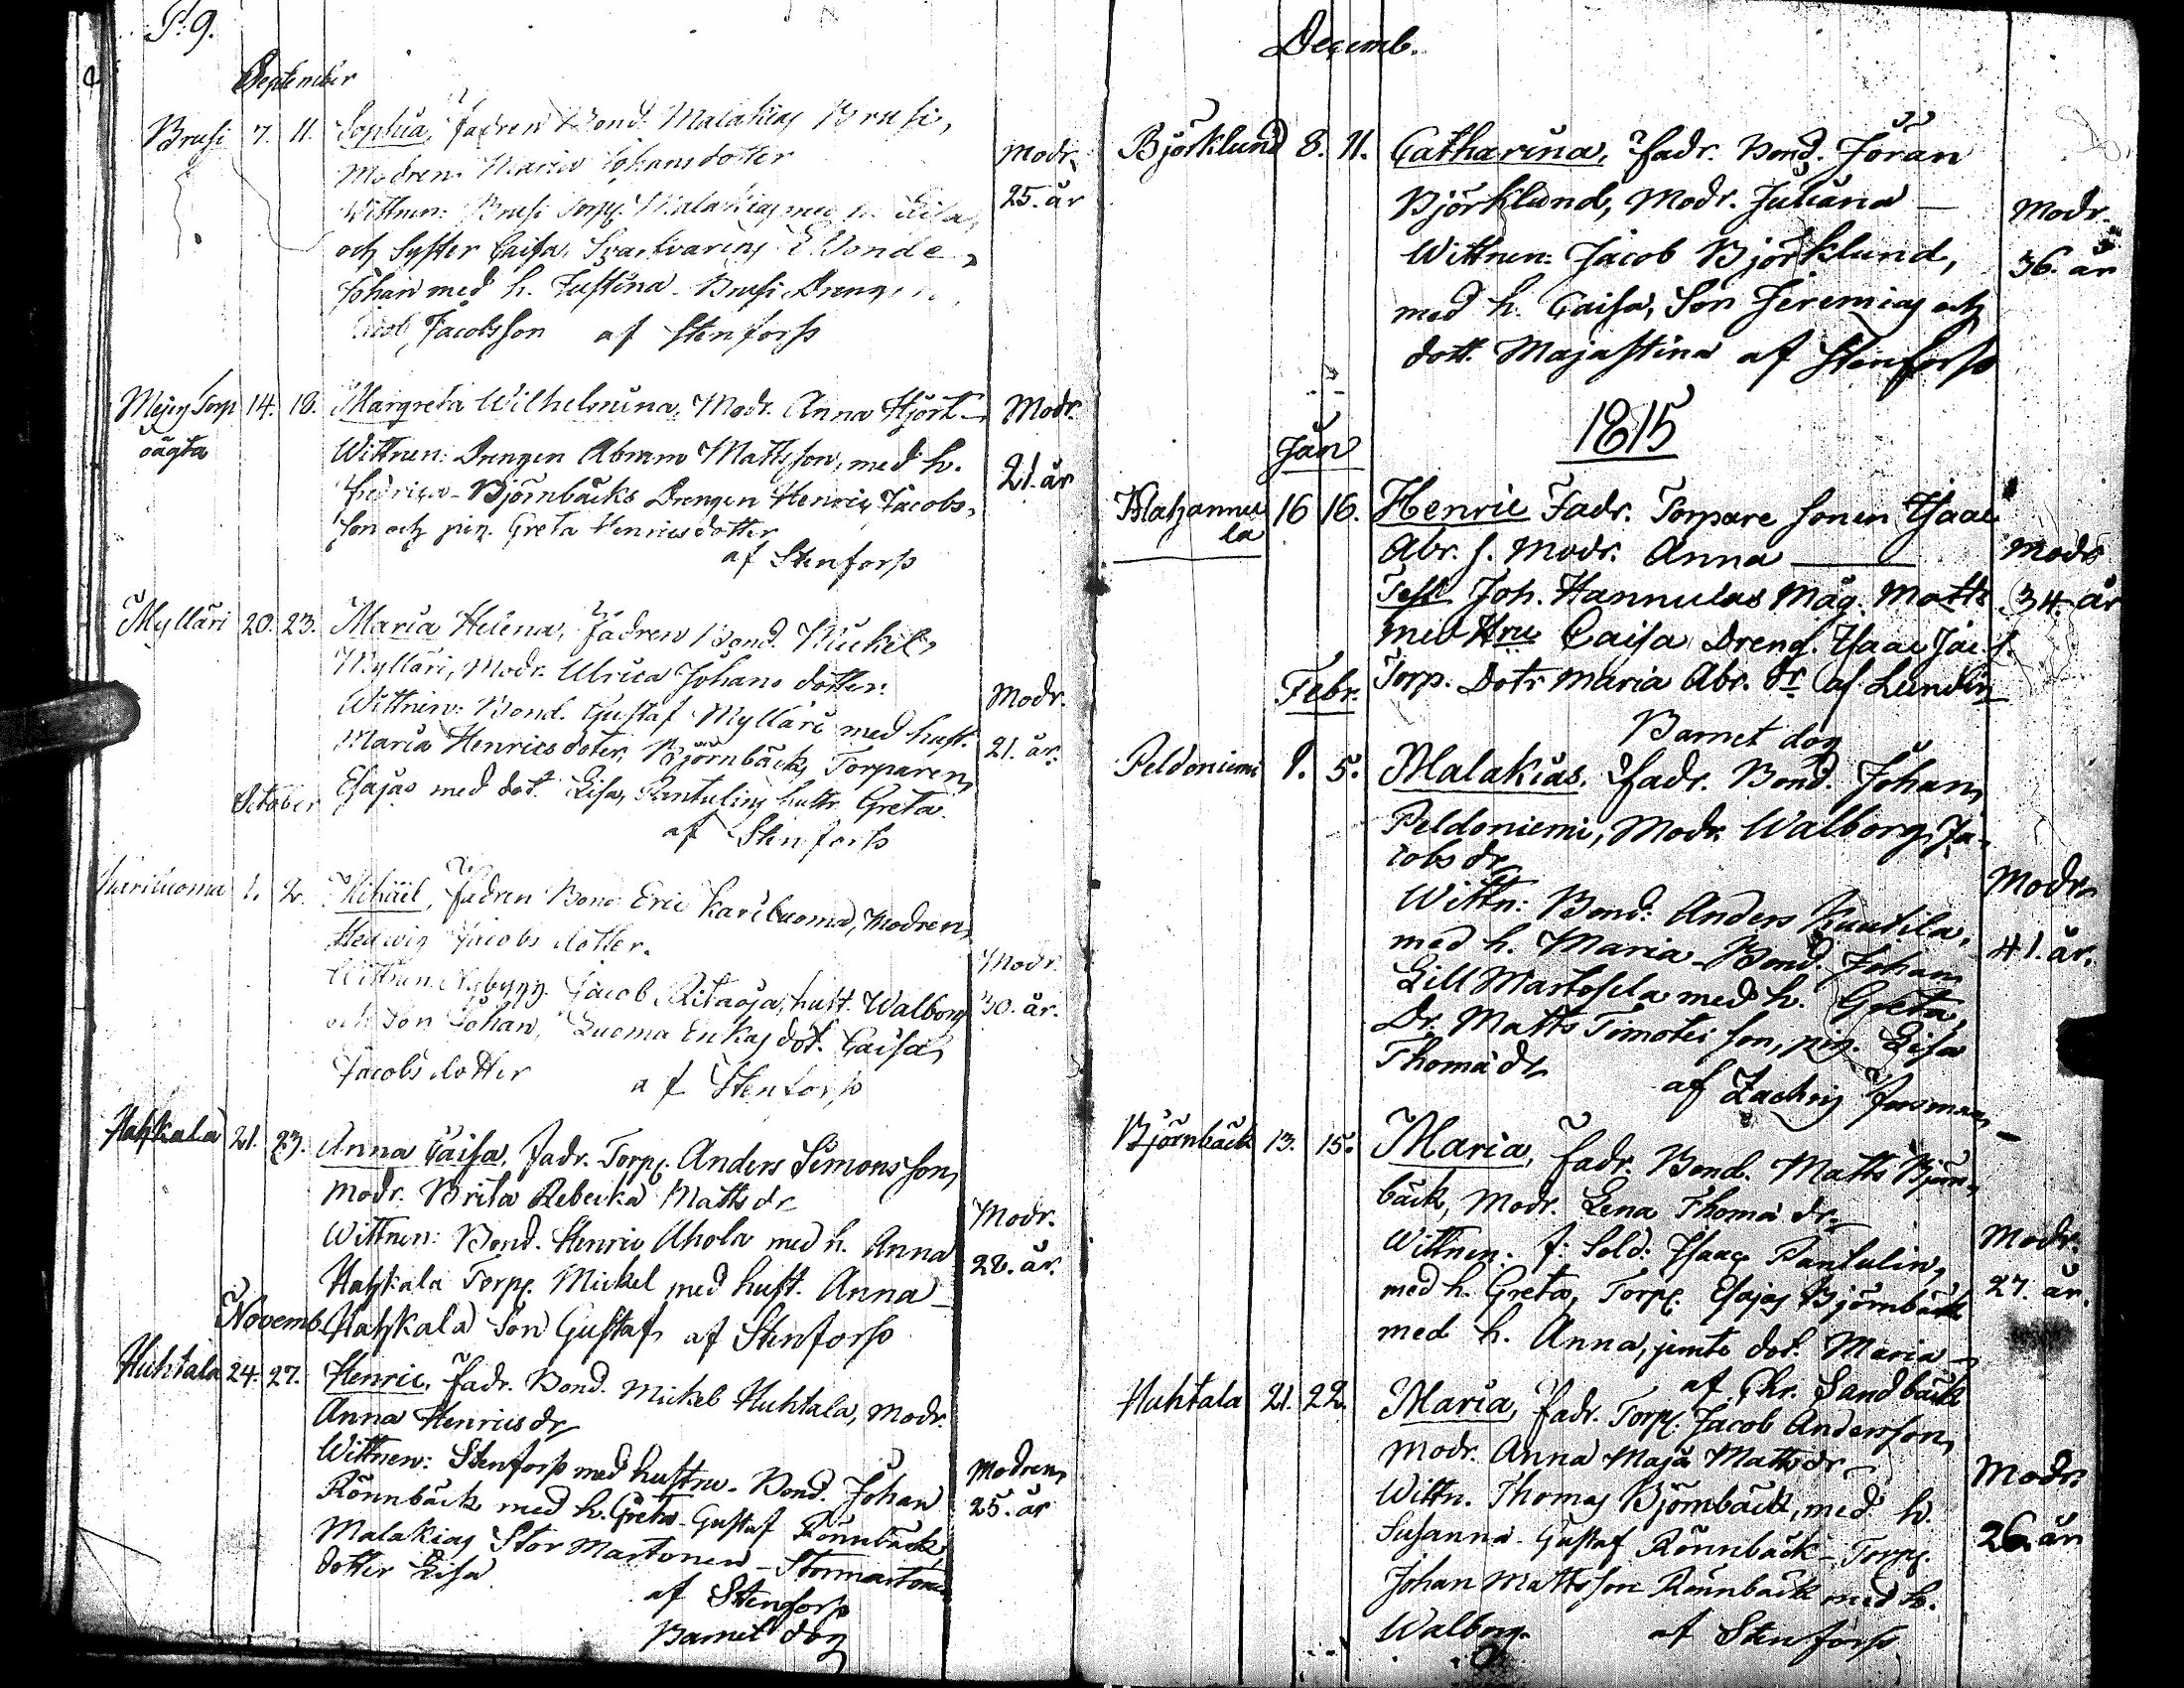 P. 9.
September
Brusi 7. 11. Sophia, Fadren Bond. Malakias Brusi,
Modren Maria Johansdotter
Modr.
Wittnen: Brusi Torp. Malakias med h. Lisa,
25. år
och Syster Caisa, Svartvarins E. Bonde
Johan med h. Justina - Brusi Dreng
Jacob Jacobsson af Stenforss
Mejers Torp 14. 18. Margreta Wilhelmina, Modr. Anna Hjört - Modr.
oägta
Wittnen: Drengen Abram Mattsson, med h. 21. år
Fredrica - Björnbäcks Drengen Henric Jacobs-
son och pig. Greta Henricsdotter
af Stenforss
Mylläri 20. 23. Maria Helena, Fadren Bond. Mickel
Mylläri, Modr. Ulrica Johans dotter.
Modr.
Wittnen: Bond. Gustaf Mylläri med hust.
21. år.
Maria Henricsdoter, Björnbäcks Torparen
Esajas med dot. Lisa, Pantulins hustr. Greta.
af Stenforss
October
Kariluoma 1. 2. Michäel, Fadren Bond Eric Kariluoma, Modren
Hedwig Jacobs dotter.
Modr.
Wittnen. Nybygg. Jacob Ritaoja, hust. Walborg 30. år.
och Son Johan, Luoma Enkas dot. Caisa
Jacobs dotter af Stenforss
Hahkala 21. 23. Anna Caisa, Fadr. Torp. Anders Simonsson,
Modr. Brita Rebecka Matts dr
Modr.
Wittnen: Bond. Henric Ahola med h. Anna 28. år.
Hahkala Torp. Mickel med hust. Anna -
Hahkala Son Gustaf, af Stenforss
Novemb.
Huhtala 24. 27. Henric, Fadr. Bond. Mickel Huhtala, Modr.
Anna Henrics dr
Wittnen: Stenforss med hustru - Bond. Johan Modren
Rönnbäck med h. Greta - Gustaf Rönnbäck, 25. år
Malakias Stor Martonen - Stormartonen
dotter Lisa
af Stenforss
Barnet dog
Decemb.
Björklund 8. 11. Catharina, Fadr. Bond. Jöran
Björklund, Modr. Juliana - Modr.
Wittnen: Jacob Björklund, 36. år
med h. Caisa, Son Jeremias och
dott. Majastina af Stenforss
1815
Jan
Klahannula 16 16. Henric Fadr. Torpare sonen Isaac
Abr. s. Modr. Anna Modr
Test Joh. Hannulas Måg. Matts 34. år
med Hru Caisa Dreng. Isaac Jac. s.
Torp. Dotr Maria Abr. dr af Lundin
Barnet dog
Febr.
Peldoniemi 1. 5. Malakias, Fadr. Bond. Johan
Peldoniemi, Modr. Walborg Ja-
cobs dr
Modr
Wittn: Bond: Anders Kuutila,
med h. Maria - Bond. Johan 41. år.
Lill Martosela med h. Greta,
Dr. Matts Timotei son, pig. Lisa
Thomä dr
af Zachris
Björnbäck 13. 15. Maria, Fadr. Bond. Matts Björn-
bäck, Modr. Lena Thomä dr
Modr.
Wittnen: f. Sold: Isaac Pantulin,
med h. Greta, Torp. Esajas Björnbäck 27. år.
med h. Anna, jemte dot. Maria -
af Chr. Sandbäck
Huhtala 21. 22. Maria, Fadr. Torp. Jacob Andersson,
Modr. Anna Maja Matts dr
Modr
Wittn. Thomas Björnbäck, med h.
Susanna - Gustaf Rönnbäck - Torp. 26. år
Johan Mattsson Rönnbäck med h.
Walborg. af Stenforss